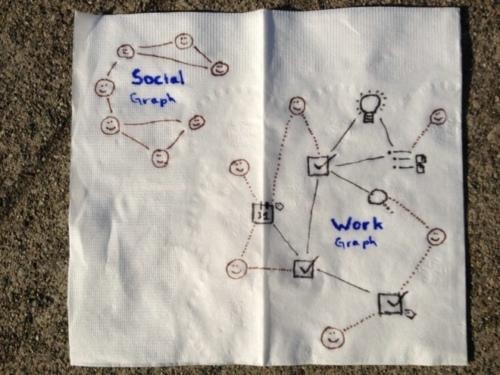 Social
Graph
31
Work
Graph